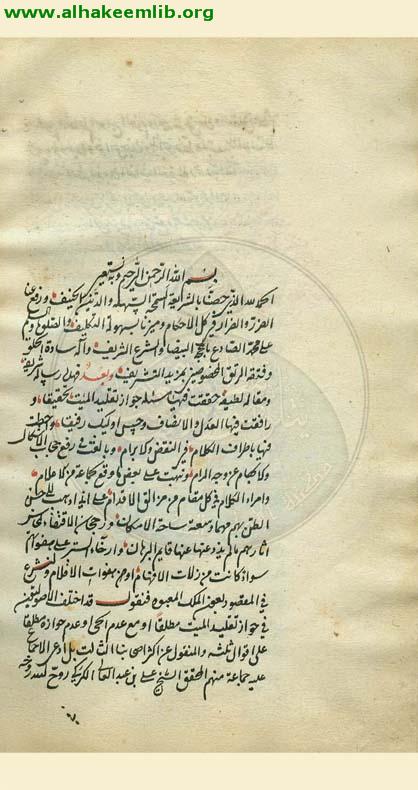 www.alhakeemlib.org
بسم الله الرحمن الرحيم وبه نستعين
الحمد لله الذي خصنا بالشريعة السمحة السهلة والدين الحنيف ورفع عنا
الضرر والضرار في كل الاحكام وميزنا بسهولة التكليف والصلوة على
محمد الصادع بالحجج البيضا والشرع الشريف وآله سادة الخلق
المخصوصين بمزيد التشريف وبعد فهذه رسالة شريفة
ومقالة لطيفة حققت فيها مسئلة جواز تقليد الميت تحقيقا و
رافقت فيها العدل والانصاف وحسن اولئك رفيقا واحطت
فيها باطراف الكلام في النقض والابرام وبالغت في رفع حجاب الاشكال
والابهام عن وجه المرام ونبهت على بعض ما وقع لجماعة من الاعلام
الكلام في كل مقام من مزالق الاقدام على
الظن بهم مهما وسعته ساحة الامكان ورجحان الاقتفاء
آثارهم ما لم يذد عنها قائم البرهان وارخاء الستر على هفواتهم
سواء كانت من زلات الافهام او من هفوات الاقلام ولنشرع
في المقصود بعون الملك المعبود فنقول قد اختلف الاصوليون
في جواز تقليد الميت مطلقا او مع عدم الحي وعدم جوازه مطلقا
على اقوال ثلثة والمنقول عن اكثر اصحابنا الثالث بل ادعى الاجماع
عليه جماعة منهم المحقق الشيخ على بن عبد العالى الكركي روح الله روحه